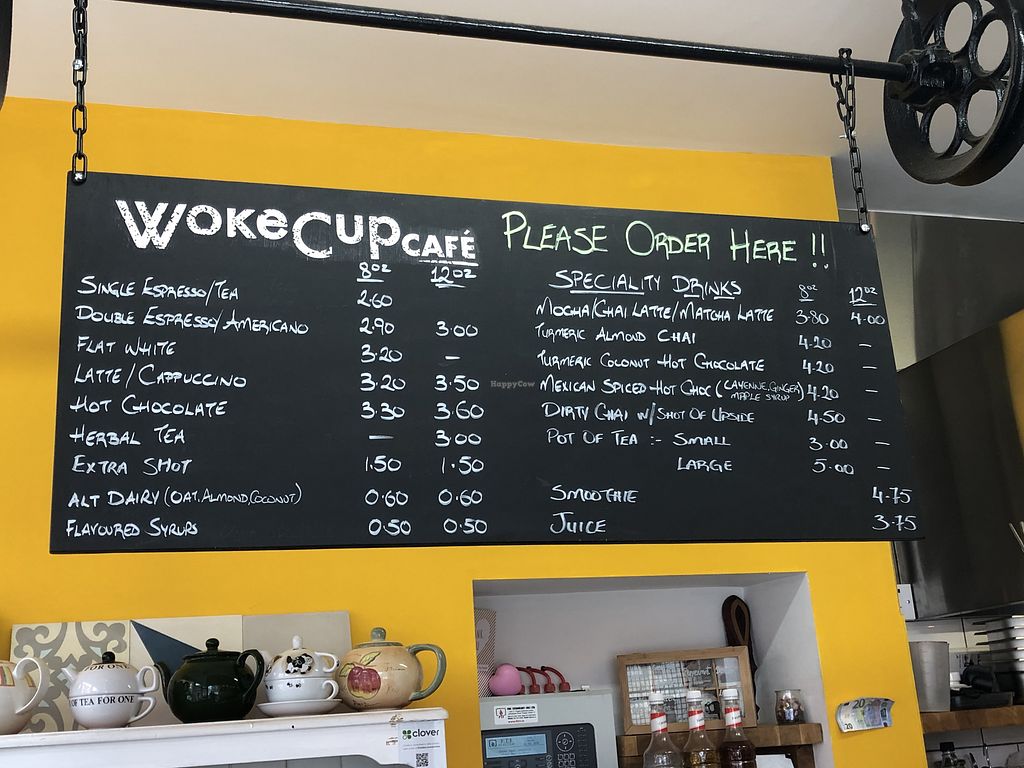 WOKE CUP CAFÉ
PLEASE ORDER HERE !!
8oz 12oz
SINGLE ESPRESSO/TEA 2.60
DOUBLE ESPRESSO/AMERICANO 2.90 3.00
FLAT WHITE 3.20 —
LATTE/CAPPUCCINO 3.20 3.50
HOT CHOCOLATE 3.30 3.60
HERBAL TEA — 3.00
EXTRA SHOT 1.50 1.50
ALT DAIRY (OAT, ALMOND, COCONUT) 0.60 0.60
FLAVOURED SYRUPS 0.50 0.50
SPECIALITY DRINKS 8oz 12oz
MOCHA/CHAI LATTE/MATCHA LATTE 3.80 4.00
TURMERIC ALMOND CHAI 4.20 —
TURMERIC COCONUT HOT CHOCOLATE 4.20 —
MEXICAN SPICED HOT CHOC (CAYENNE, GINGER MAPLE SYRUP) 4.20 —
DIRTY CHAI W/ SHOT OF UPSIDE 4.50 —
POT OF TEA :- SMALL 3.00 —
LARGE 5.00 —
SMOOTHIE 4.75
JUICE 3.75
HappyCow
FOR ONE
TEA FOR ONE
OF TEA FOR ONE
clover
20